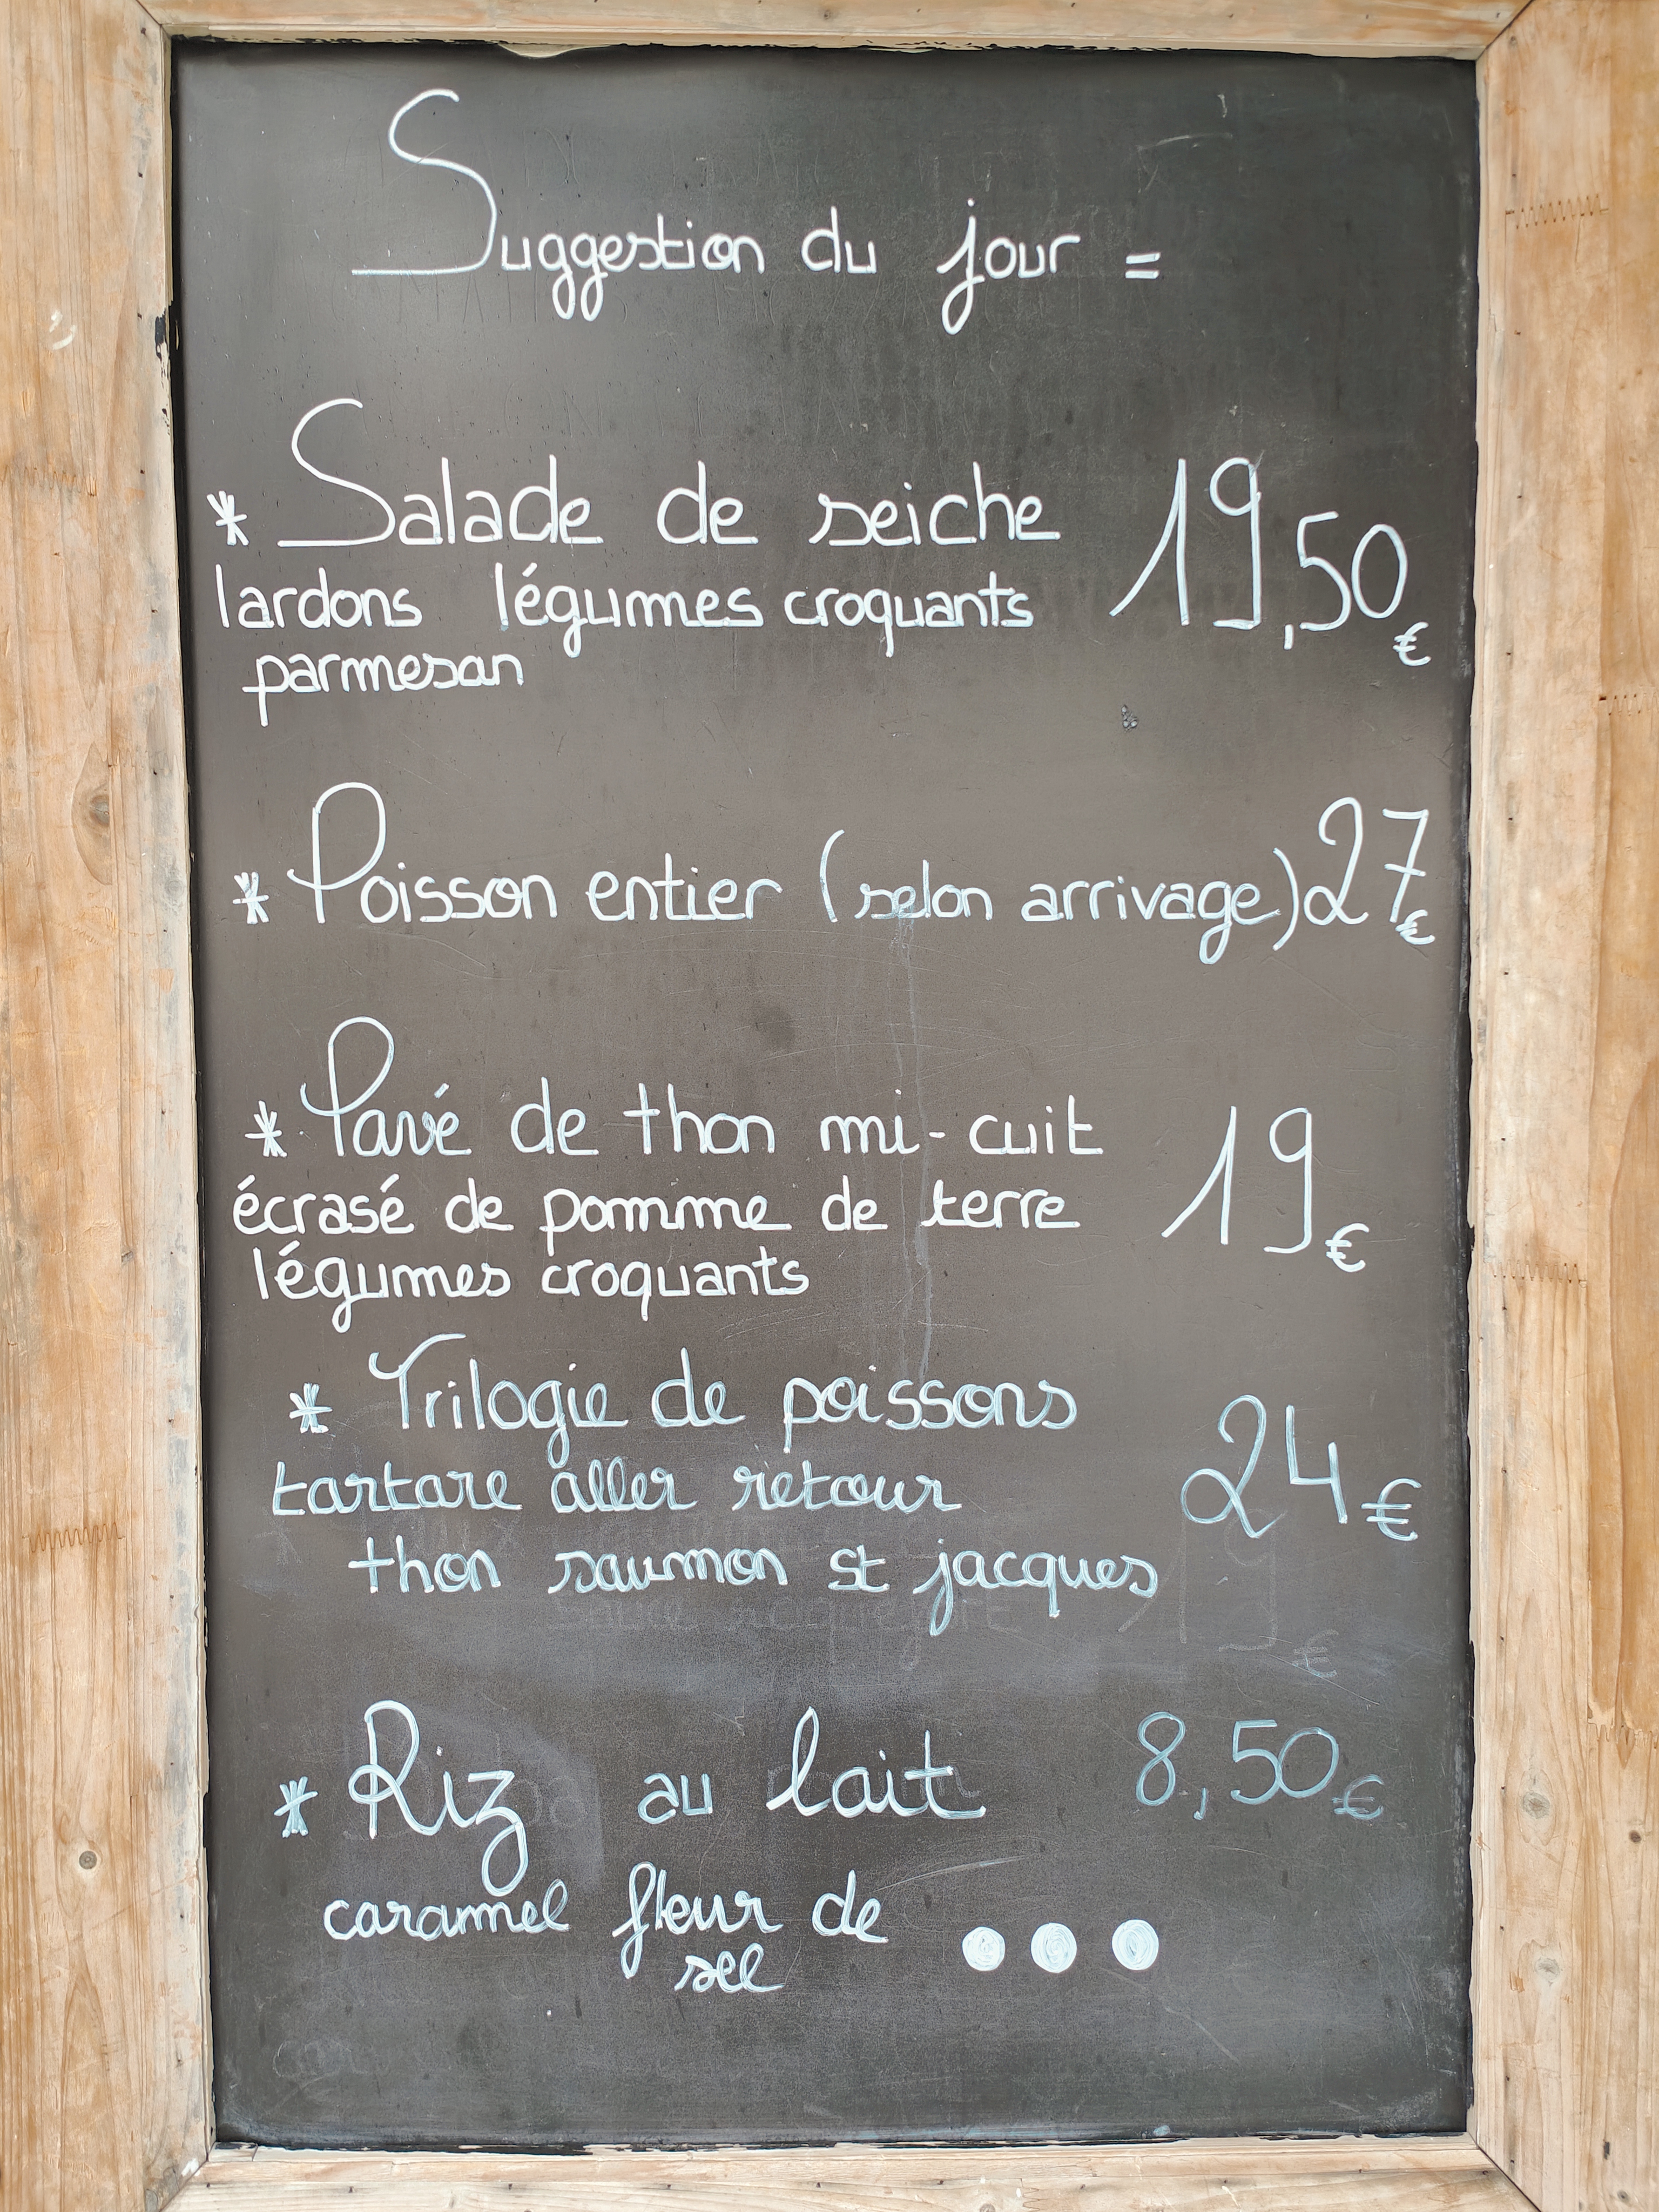 Suggestion du jour =
* Salade de seiche 19,50€
lardons légumes croquants
parmesan
* Poisson entier (selon arrivage) 27€
* Pavé de thon mi-cuit
écrasé de pomme de terre 19€
légumes croquants
* Trilogie de poissons
tartare aller retour 24€
thon saumon st jacques
* Riz au lait 8,50€
caramel fleur de
sel